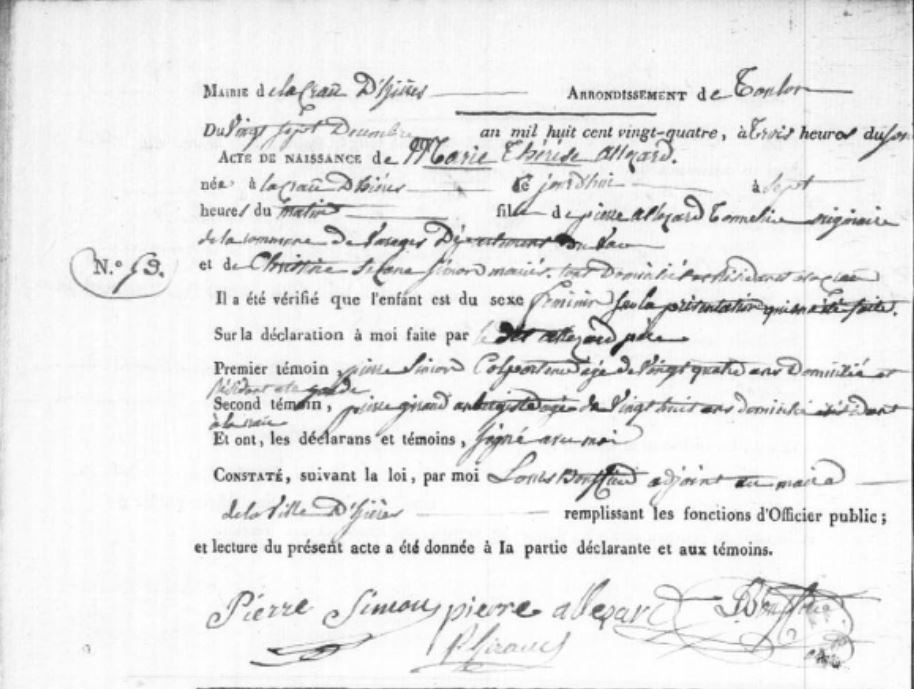 MAIRIE de la Crau D'hières ARRONDISSEMENT de Toulon
Du Vingt sept Decembre an mil huit cent vingt-quatre, à trois heures du soir
ACTE DE NAISSANCE de Marie Thérèse allegard.
née à la Crau D'hières Ce jourdhui à sept
heures du matin fille de pierre allegard originaire
de la commune de Département Du Var
et de Christine Simon mariés. tous Domiciliés
N.°
Il a été vérifié que l'enfant est du sexe feminin sur la présentation qui en a été faite.
Sur la déclaration à moi faite par le dit allegard père
Premier témoin, pierre Simon Colporteur agé de Vingt quatre ans Domicilié et
résidant a la garde
Second témoin, pierre giraud aubergiste agé de Vingt huit ans domicilié résidant
à la crau
Et ont, les déclarans et témoins, signé avec moi
CONSTATÉ, suivant la loi, par moi Louis adjoint au maire
de la Ville D'hières remplissant les fonctions d'Officier public;
et lecture du présent acte a été donnée à la partie déclarante et aux témoins.
Pierre Simon pierre allegard
P. Giraud